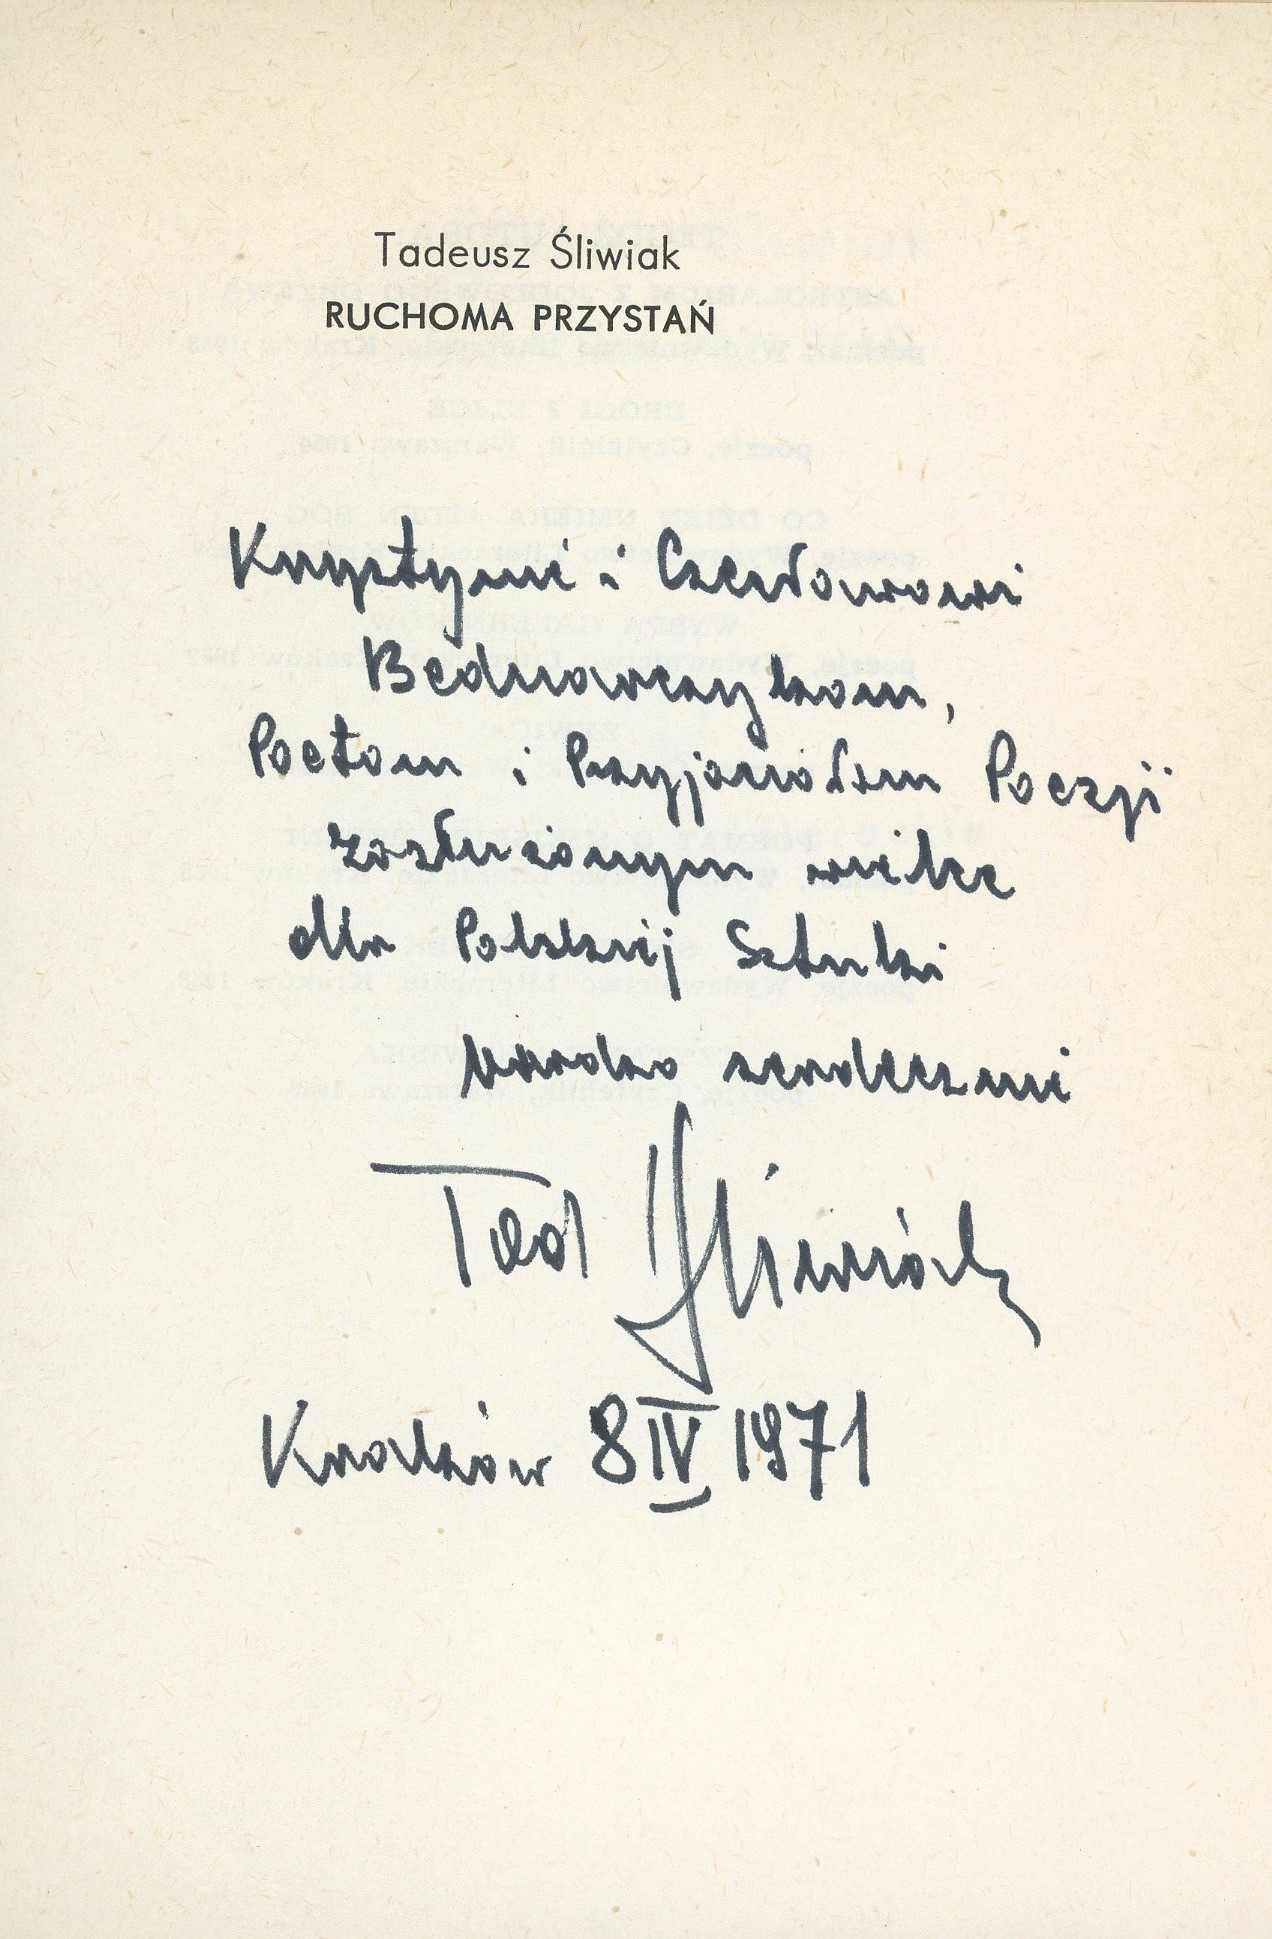 Tadeusz Śliwiak
RUCHOMA PRZYSTAŃ
Krystynie i Czesławowi
Bednarczykom,
Poetom i Przyjaciołom Poezji
zasłużonym wielce
dla Polskiej Sztuki
bardzo serdecznie
Tad Śliwiak
Kraków 8 IV 1971